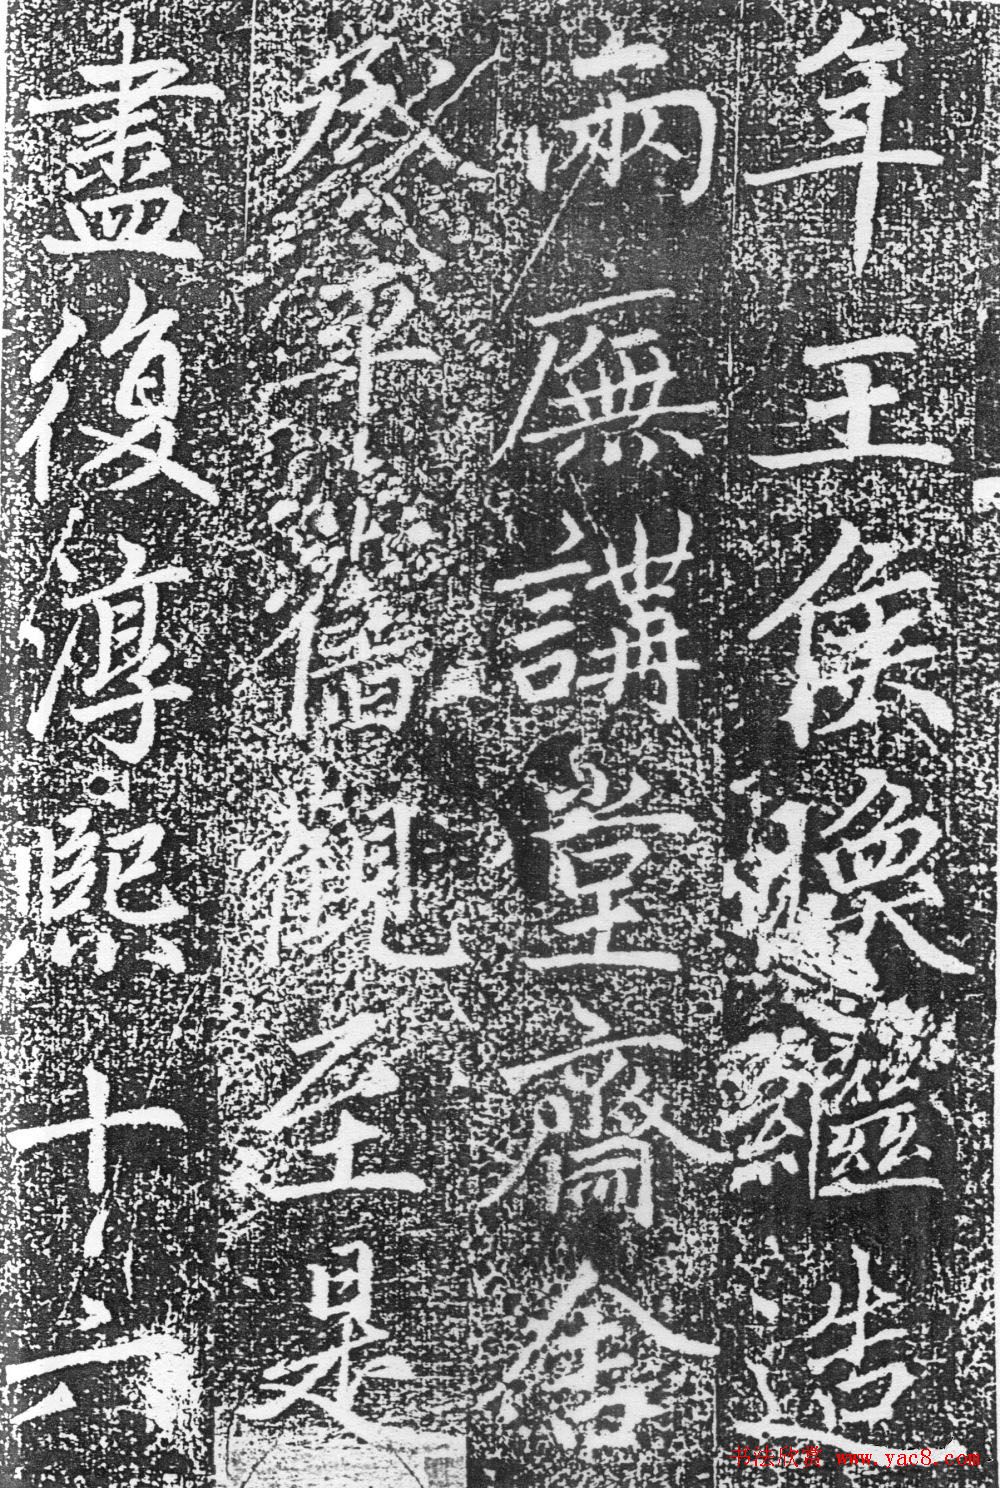 年王侯㬇繼造
兩廡講堂齋舍
觀至是
盡復淳熙十六
书法欣赏 www.yac8.com